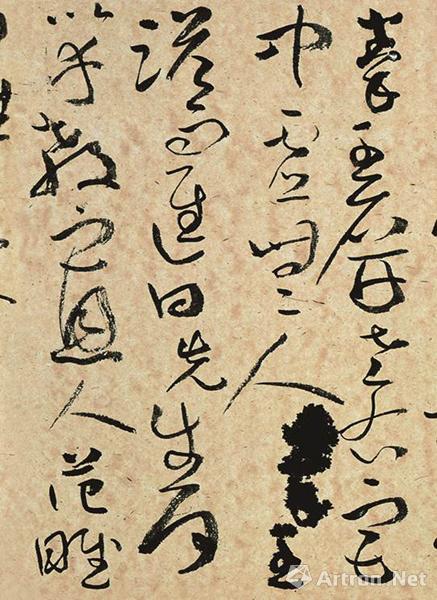 秦王屏左右宮
中虛無人秦王
跪而進曰先生何
以幸教寡人范雎
Artron.Net